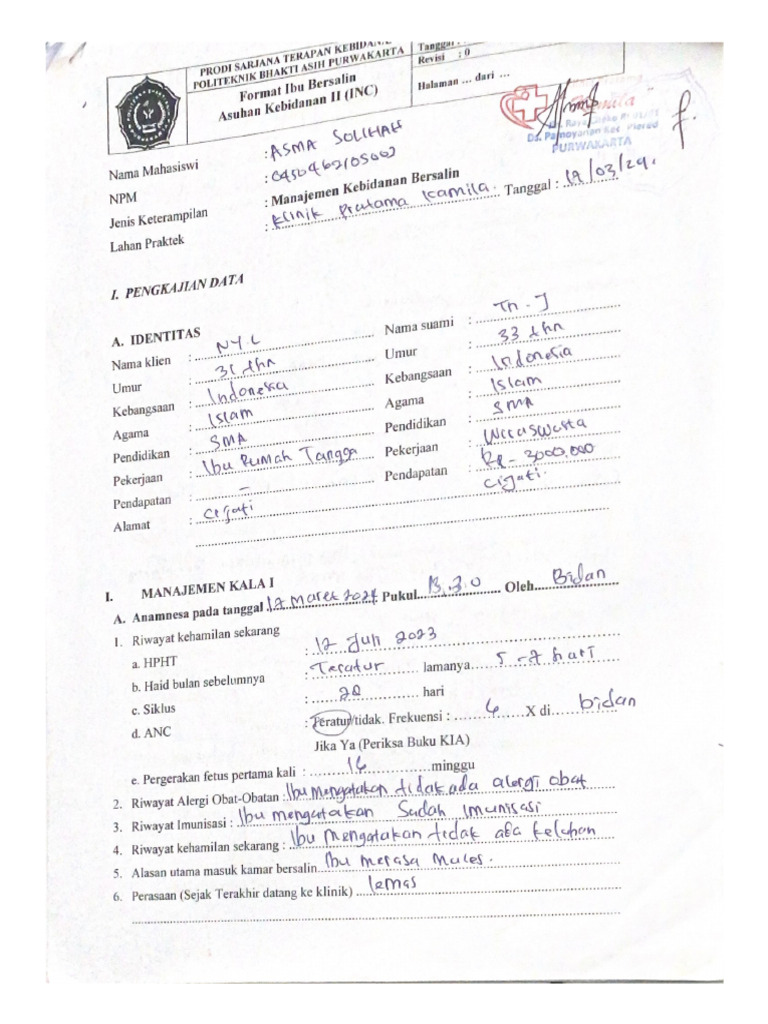 PRODI SARJANA TERAPAN KEBIDANAN
POLITEKNIK BHAKTI ASIH PURWAKARTA
Format Ibu Bersalin
Asuhan Kebidanan II (INC)
Tanggal :
Revisi : 0
Halaman ... dari ...
PURWAKARTA
Nama Mahasiswi : ASMA SOLIHAH
NPM :
Jenis Keterampilan : Manajemen Kebidanan Bersalin
Lahan Praktek : Klinik Pratama Kamila. Tanggal : 19/03/24.
I. PENGKAJIAN DATA
A. IDENTITAS
Nama klien : NY. L Nama suami : Tn. J
Umur : 31 thn Umur : 33 thn
Kebangsaan : Indonesia Kebangsaan : Indonesia
Agama : Islam Agama : Islam
Pendidikan : SMA Pendidikan : SMA
Pekerjaan : Ibu Rumah Tangga Pekerjaan : Wiraswasta
Pendapatan : - Pendapatan : Rp - 3000.000
Alamat : cijati cijati.
I. MANAJEMEN KALA I
A. Anamnesa pada tanggal Maret 2024 Pukul Oleh Bidan
1. Riwayat kehamilan sekarang
a. HPHT : 12 Juli 2023
b. Haid bulan sebelumnya : Teratur lamanya 5-7 hari
c. Siklus : 28 hari
d. ANC : Teratur/tidak. Frekuensi : 6 X di bidan
Jika Ya (Periksa Buku KIA)
e. Pergerakan fetus pertama kali : 16 minggu
2. Riwayat Alergi Obat-Obatan : Ibu mengatakan tidak ada alergi obat
3. Riwayat Imunisasi : Ibu mengatakan Sudah Imunisasi
4. Riwayat kehamilan sekarang : Ibu mengatakan tidak ada keluhan
5. Alasan utama masuk kamar bersalin Ibu merasa mules.
6. Perasaan (Sejak Terakhir datang ke klinik) lemas